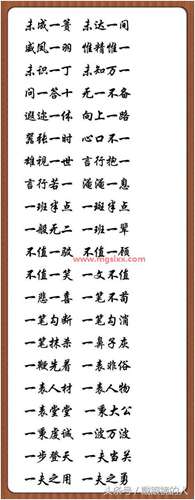 未成一篑 未达一间
威凤一羽 惟精惟一
未识一丁 未知万一
问一答十 无一不备
遐迩一体 向上一路
嚣张一时 心口不一
雄视一世 言行抱一
言行若一 淹淹一息
一班半点 一斑半点
一般无二 一班一辈
不值一驳 不值一顾
www.mgsixx.com
不值一笑 一文不值
一悲一喜 一笔不苟
一笔勾断 一笔勾消
一笔抹杀 一鼻子灰
一鞭先着 一表非俗
一表人材 一表人物
一表堂堂 一秉大公
一秉虔诚 一波万波
一步登天 一夫当关
一夫之用 一夫之勇
头条号